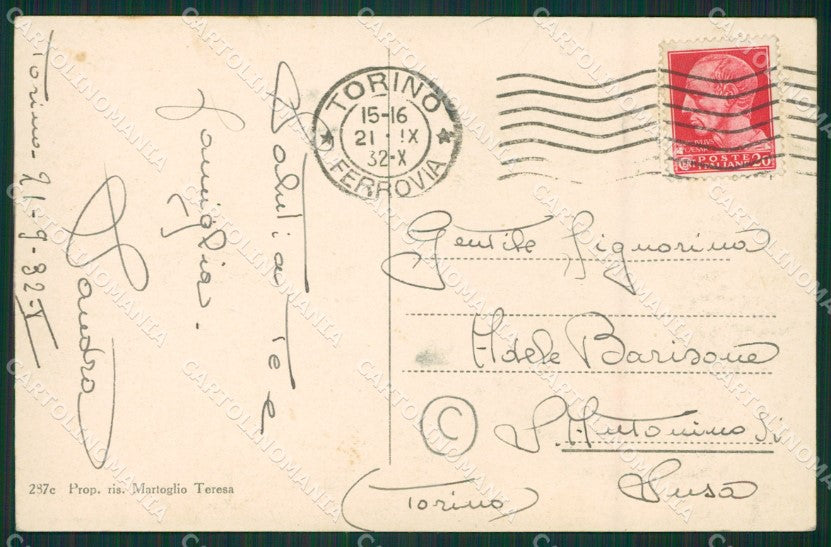 Torino - 21-9-32-X
Saluti a te e
famiglia.
Sandra
287c Prop. ris. Martoglio Teresa
TORINO
15-16
21 · IX
32-X
FERROVIA
POSTE
ITALIANE
20
Gentile Signorina
Adele Barisone
C S. Antonino di
Susa
(Torino)
CARTOLINOMANIA